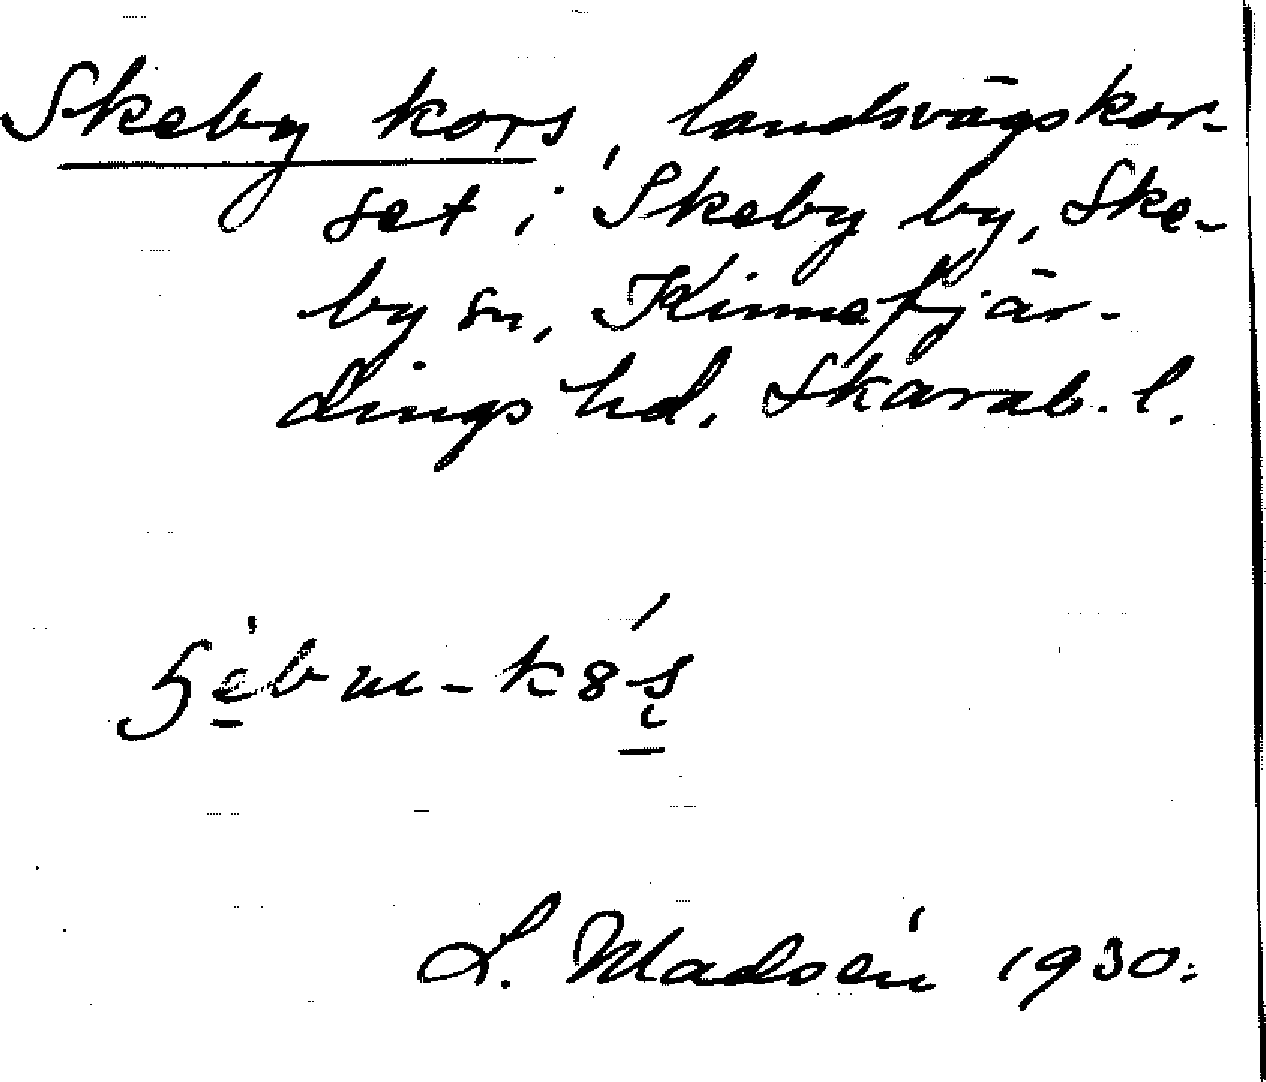 Skeby kors, landsvägskor-
set i Skeby by, Ske-
by sn, Kinnefjär-
dings hd. Skarab. l.
L. Madsén 1930.